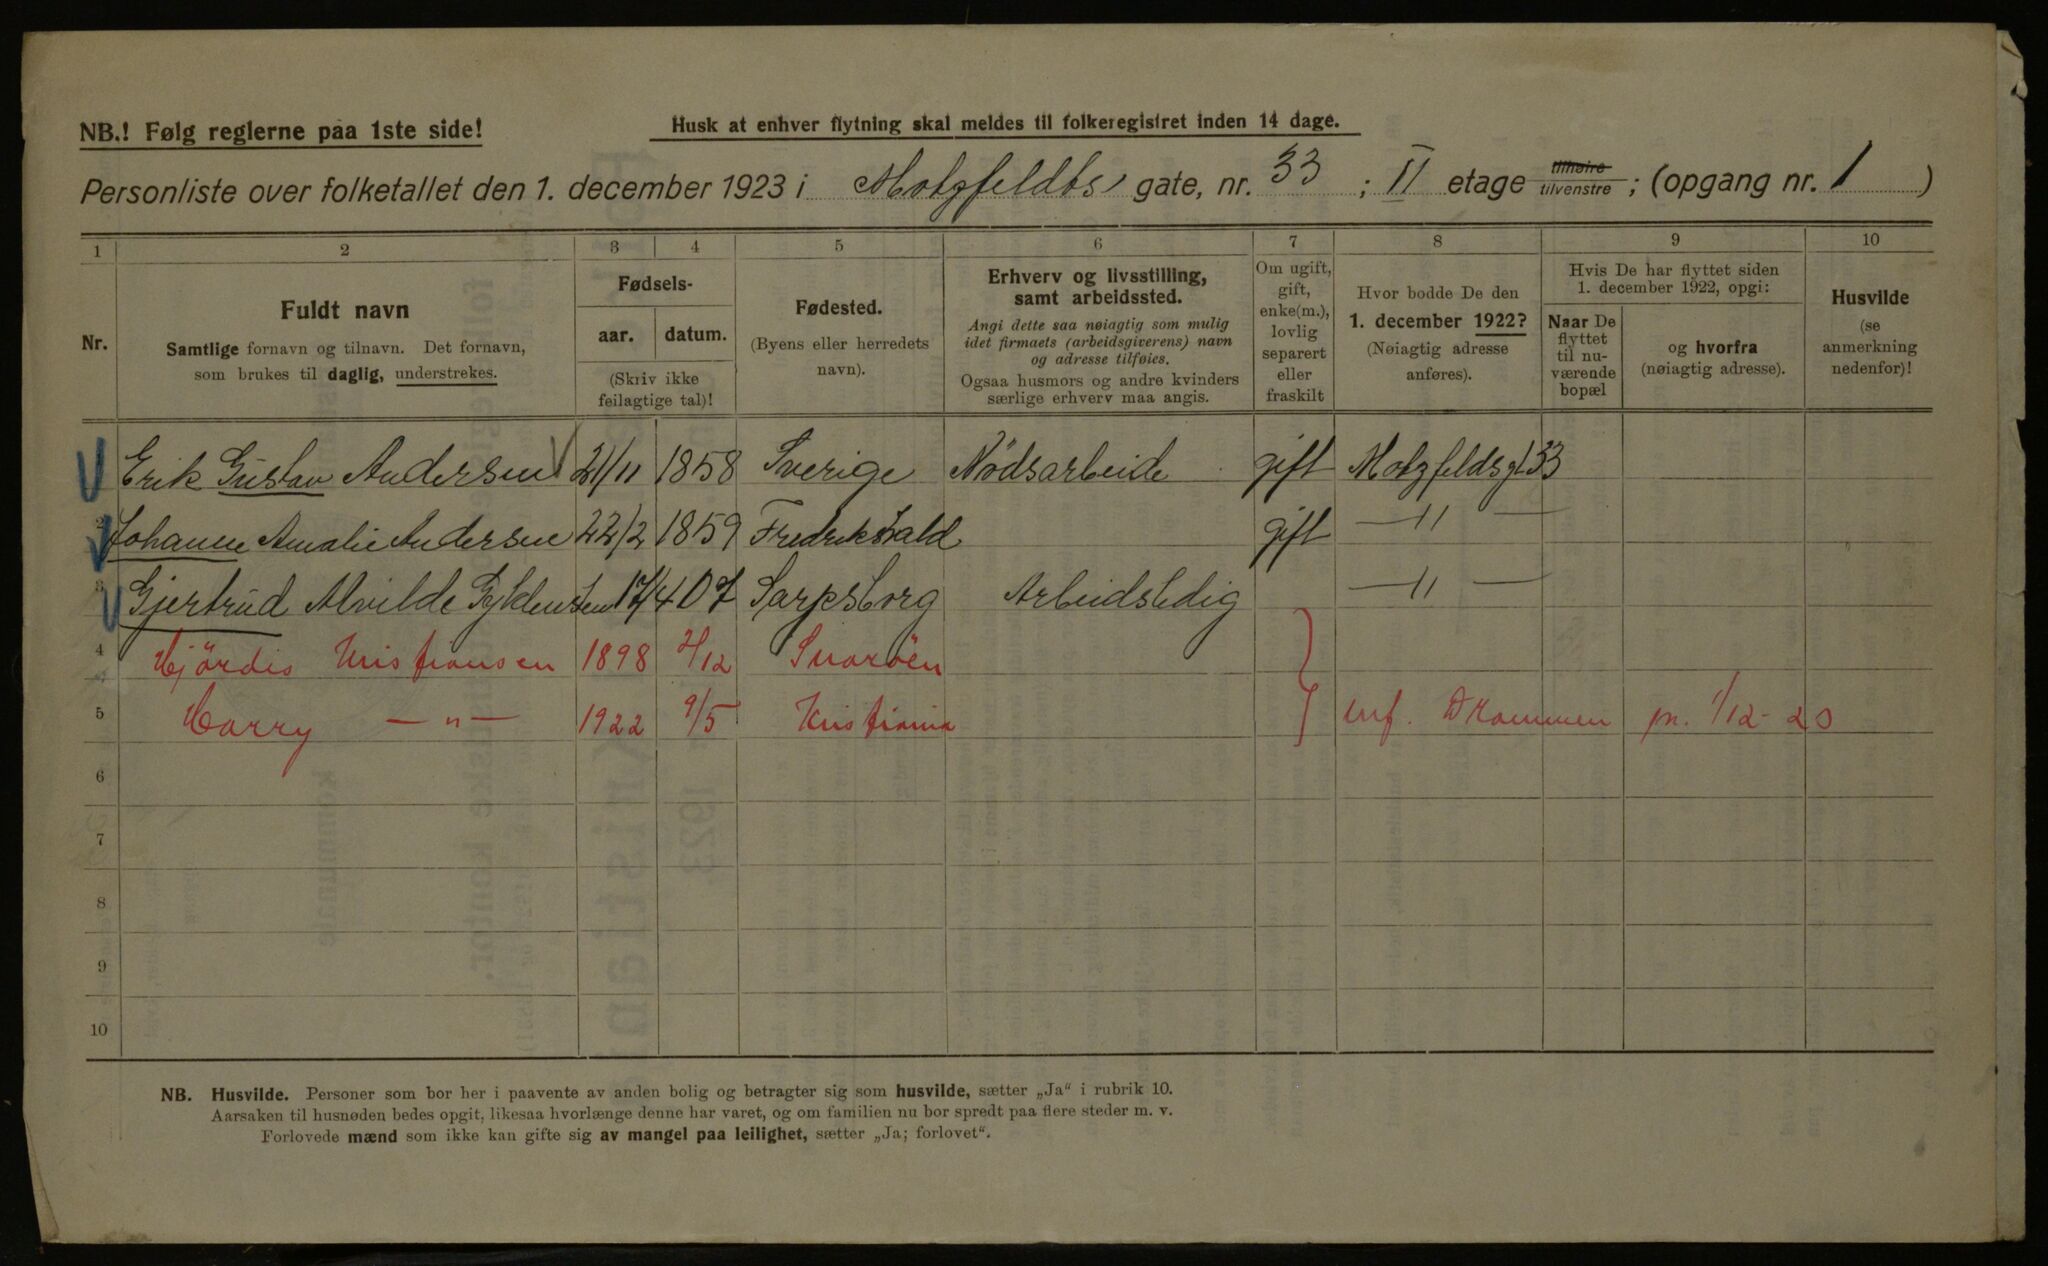 NB.! Følg reglerne paa 1ste side!
Husk at enhver flytning skal meldes til folkeregistret inden 14 dage.
Personliste over folketallet den 1. december 1923 i Motzfeldts gate, nr. 33 ; II etage tilhøire tilvenstre ; (opgang nr. 1 )
1 2 3 4 5 6 7 8 9 10
Nr.
Fuldt navn
Samtlige fornavn og tilnavn. Det fornavn,
som brukes til daglig, understrekes.
Fødsels-
aar. datum.
(Skriv ikke
feilagtige tal)!
Fødested.
(Byens eller herredets
navn).
Erhverv og livsstilling,
samt arbeidssted.
Angi dette saa nøiagtig som mulig
idet firmaets (arbeidsgiverens) navn
og adresse tilføies.
Ogsaa husmors og andre kvinders
særlige erhverv maa angis.
Om ugift,
gift,
enke(m.),
lovlig
separert
eller
fraskilt
Hvor bodde De den
1. december 1922?
(Nøiagtig adresse
anføres).
Hvis De har flyttet siden
1. december 1922, opgi:
Naar De
flyttet
til nu-
værende
bopæl
og hvorfra
(nøiagtig adresse).
Husvilde
(se
anmerkning
nedenfor)!
Erik Gustav Andersen 21/11 1858 Sverige Nödsarbeide gift Motzfeldsgt 33
2 Johanne Amalie Andersen 22/2 1859 Fredrikshald gift — 〃 —
3 Gjertrud Alvilde 17/4 07 Sarpsborg Arbeidsledig — 〃 —
4 Hjördis Kristiansen 1898 2/12 Snaröen
5 Harry — 〃 — 1922 9/5 Kristiania inf. Drammen pr. 1/12-23
6
7
8
9
10
NB. Husvilde. Personer som bor her i paavente av anden bolig og betragter sig som husvilde, sætter „Ja“ i rubrik 10.
Aarsaken til husnøden bedes opgit, likesaa hvorlænge denne har varet, og om familien nu bor spredt paa flere steder m. v.
Forlovede mænd som ikke kan gifte sig av mangel paa leilighet, sætter „Ja; forlovet“.